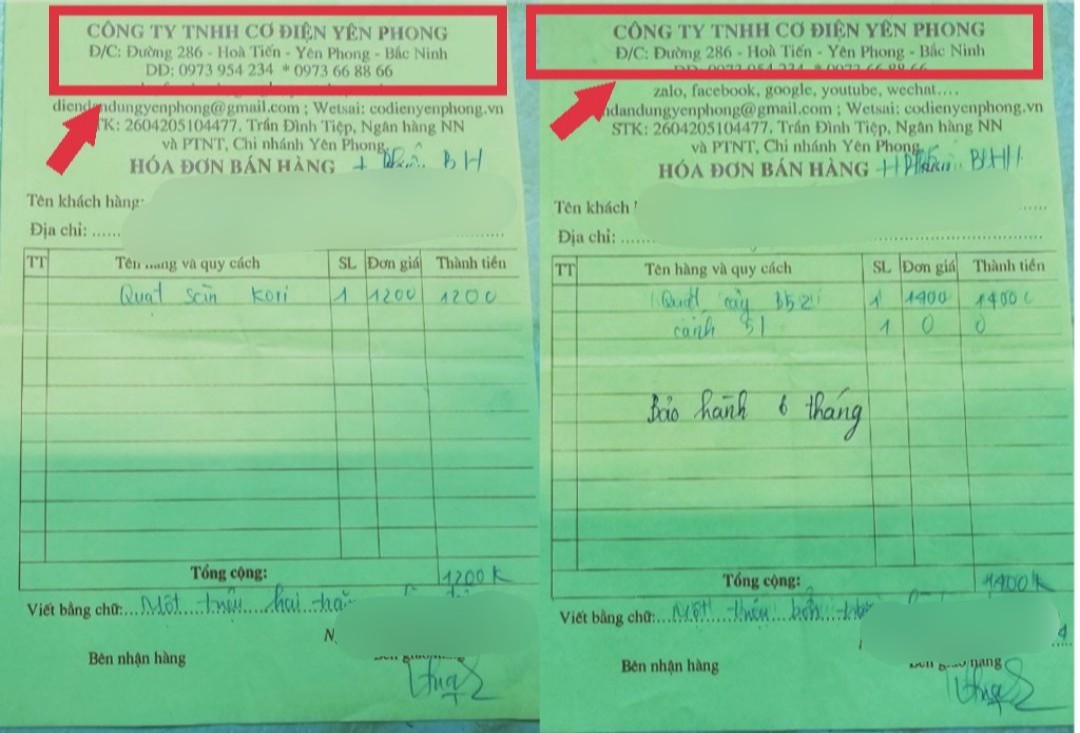 CÔNG TY TNHH CƠ ĐIỆN YÊN PHONG
Đ/C: Đường 286 - Hoà Tiến - Yên Phong - Bắc Ninh
DD: 0973 954 234 * 0973 66 88 66
diendandungyenphong@gmail.com ; Wetsai: codienyenphong.vn
TK: 2604205104477, Trần Đình Tiệp, Ngân hàng NN
và PTNT, Chi nhánh Yên Phong
HÓA ĐƠN BÁN HÀNG + BH
Tên khách hàng:
Địa chỉ: ......
TT Tên hàng và quy cách SL Đơn giá Thành tiền
Quạt sàn Kori 1 1200 1200
Tổng cộng: 1200K
Viết bằng chữ: Một triệu hai
Bên nhận hàng
CÔNG TY TNHH CƠ ĐIỆN YÊN PHONG
Đ/C: Đường 286 - Hoà Tiến - Yên Phong - Bắc Ninh
DD: 0973 954 234 * 0973 66 88 66
zalo, facebook, google, youtube, wechat....
ndandungyenphong@gmail.com ; Wetsai: codienyenphong.vn
STK: 2604205104477, Trần Đình Tiệp, Ngân hàng NN
và PTNT, Chi nhánh Yên Phong
HÓA ĐƠN BÁN HÀNG
Tên khách
Địa chỉ: ......
TT Tên hàng và quy cách SL Đơn giá Thành tiền
Quạt cây 1 1400 1400
cánh 51 1 0 0
Bảo hành 6 tháng
Tổng cộng: 1400K
Viết bằng chữ: Một triệu bốn
Bên nhận hàng